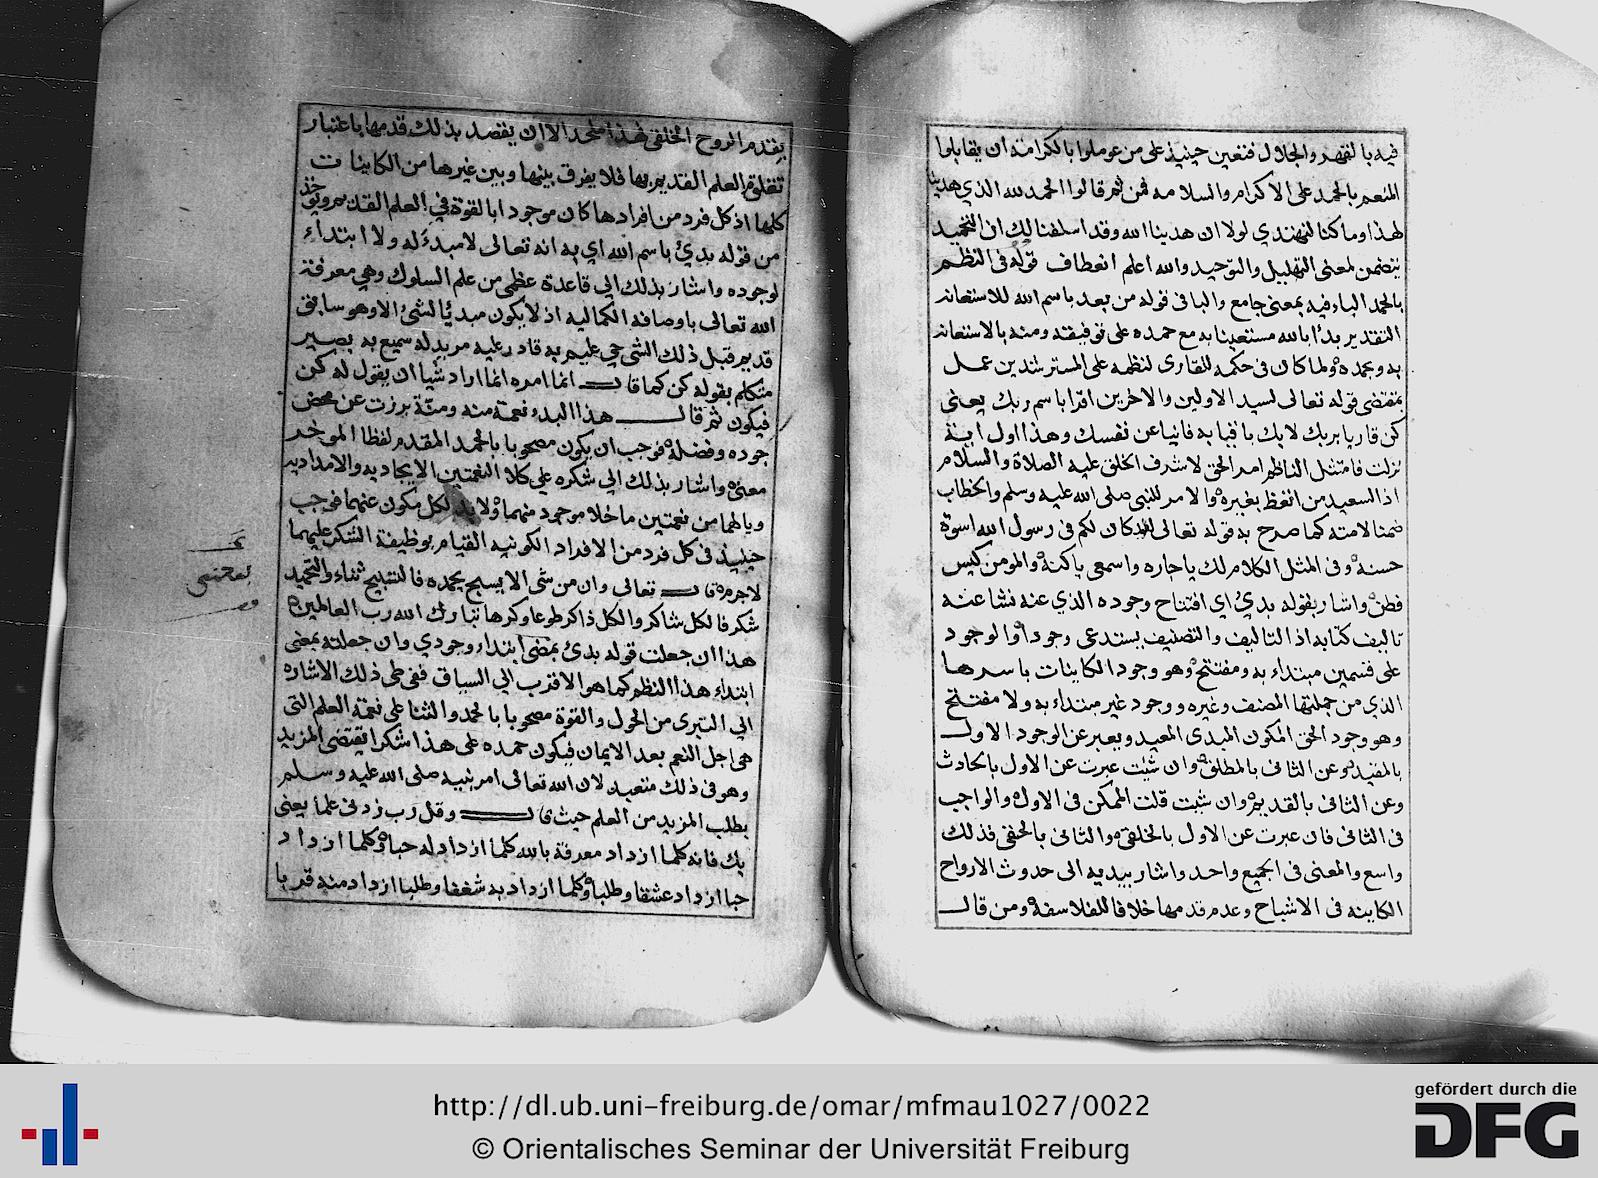 فيه بالقهر والجلال فتعين حينيذ على من عوملوا بالكرامة ان يقابلوا
المنعم بالحمد على الاكرام والسلامه فمن ثم قالوا الحمد لله الذي هدينا
لهذا وما كنا لنهتدي لولا ان هدينا الله وقد اسلفنا لك ان التحميد
يتضمن لمعنى التهليل والتوحيد والله اعلم انعطاف قوله في النظم
بالحمد الباء فيه بمعنى جامع والبا في قوله من بعد باسم الله للاستعانه
التقدير بدا بالله مستعينا به مع حمده على توفيقه ومنه بالاستعانه
به وبحمده ولما كان في حكمه للقارى لنظمه على المسترشدين عمل
بمقتضى قوله تعالى لسيد الاولين والاخرين اقرا باسم ربك يعني
كن قاريا بربك لا بك باقيا به فانيا عن نفسك وهذا اول اية
نزلت فامتثل الناظم امر الحق لاشرف الخلق عليه الصلاة والسلام
اذ السعيد من اتعظ بغيره والامر للنبي صلى الله عليه وسلم والخطاب
ضمنا لامته كما صرح به قوله تعالى لقد كان لكم في رسول الله اسوة
حسنة وفي المثل الكلام لك ياجاره واسمعى ياكنة والمومن كيس
فطن واشار بقوله بدئ اي افتتاح وجوده الذي عنه نشا عنه
تاليف كتابه اذ التاليف والتصنيف يستدعى وجودا والوجود
على قسمين مبتداء به ومفتتح وهو وجود الكاينات باسرها
الذي من جملتها المصنف وغيره ووجود غير مبتداء به ولا مفتتح
وهو وجود الحق المكون المبدى المعيد ويعبر عن الوجود الاول
بالمقيد وعن الثانى بالمطلق وان شيت عبرت عن الاول بالحادث
وعن الثانى بالقديم وان شيت قلت الممكن في الاول والواجب
في الثانى فان عبرت عن الاول بالخلقى والثانى بالحقى فذلك
واسع والمعنى في الجميع واحد واشار ببديه الى حدوث الارواح
الكاينه في الاشباح وعدم قدمها خلافا للفلاسفة ومن قال
بقدم الروح الخلقى فهذا ملحد الا ان يقصد بذلك قدمها باعتبار
تعلق العلم القديم بها فلا يفرق بينها وبين غيرها من الكاينات
كلها اذ كل فرد من افرادها كان موجودا بالقوة في العلم القديم ويوخذ
من قوله بدئ باسم الله اي به انه تعالى لا مبدء له ولا ابتداء
لوجوده واشار بذلك الي قاعدة عظمى من علم السلوك وهي معرفة
الله تعالى باوصافه الكماليه اذ لا يكون مبديًا لشئ الا وهو سابق
قديم قبل ذلك الشي حي عليم به قادر عليه مريد له سميع به بصير
متكلم بقوله كن كما قال انما امره اذا اراد شيا ان يقول له كن
فيكون ثم قال هذا البدء نعمة منه ومنّة برزت عن محض
جوده وفضله فوجب ان يكون مصحوبا بالحمد المقدم لفظا الموخر
معنى واشار بذلك الي شكره علي كلا النعمتين الايجاديه والامداديه
ويالهما من نعمتين ما خلا موجود منهما ولا بد لكل مكون عنهما فوجب
حينيذ في كل فرد من الافراد الكونيه القيام بوظيفة الشكر عليهما
لاجرم قال تعالى وان من شى الا يسبح بحمده فالتسبيح ثناء والتحميد
شكر فالكل شاكر والكل ذاكر طوعا وكرها تبارك الله رب العالمين
هذا ان جعلت قوله بدئ بمعنى ابتداء وجودي وان جعلته بمعنى
ابتداء هذا النظم كما هو الاقرب الي السياق ففي طي ذلك الاشاره
الي التبرى من الحول والقوة مصحوبا بالحمد والثنا علي نعمة العلم التي
هى اجل النعم بعد الايمان فيكون حمده على هذا شكرا يقتضى المزيد
وهو في ذلك متعبد لان الله تعالى امر نبيه صلى الله عليه وسلم
بطلب المزيد من العلم حيث قال وقل رب زدنى علما يعنى
بك فانه كلما ازداد معرفة بالله كلما ازداد له حبا وكلما ازداد
حبا ازداد عشقا وطلبا وكلما ازداد به شغفا وطلبا ازداد منه قربا
http://dl.ub.uni-freiburg.de/omar/mfmau1027/0022
© Orientalisches Seminar der Universität Freiburg
gefördert durch die
DFG